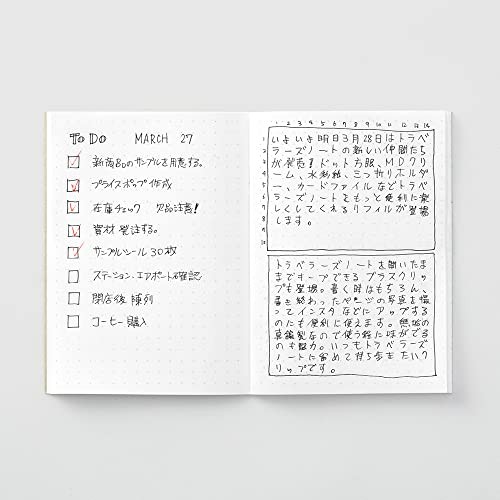 To Do MARCH 27
新商品のサンプルを用意する。
プライスポップ作成
在庫チェック 欠品注意!
資材発注する。
サンプルシール30枚
ステーション,エアポート確認
閉店後 陳列
コーヒー購入
1 2 3 4 5 6 7 8 9 10 11 12 13 14
1 いよいよ明日3月28日はトラベ
2 ラーズノートの新しい仲間たち
3 が発売!ドット方眼、MDクリ
4 ーム、水彩紙、三つ折りホルダ
5 ー、カードファイルなどトラベ
6 ラーズノートをもっと便利に楽
7 しくしてくれるリフィルが登場
8 します。
9
10
トラベラーズノートを開いたま
まキープできるブラスクリッ
プも登場。書く時はもちろん、
書き終わったページの写真を撮
ってインスタなどにアップする
のにも便利に使えます。無垢の
真鍮製なので使う程に味がでる
のも魅力。いつもトラベラーズ
ノートに留めて持ち歩きたいク
リップです。